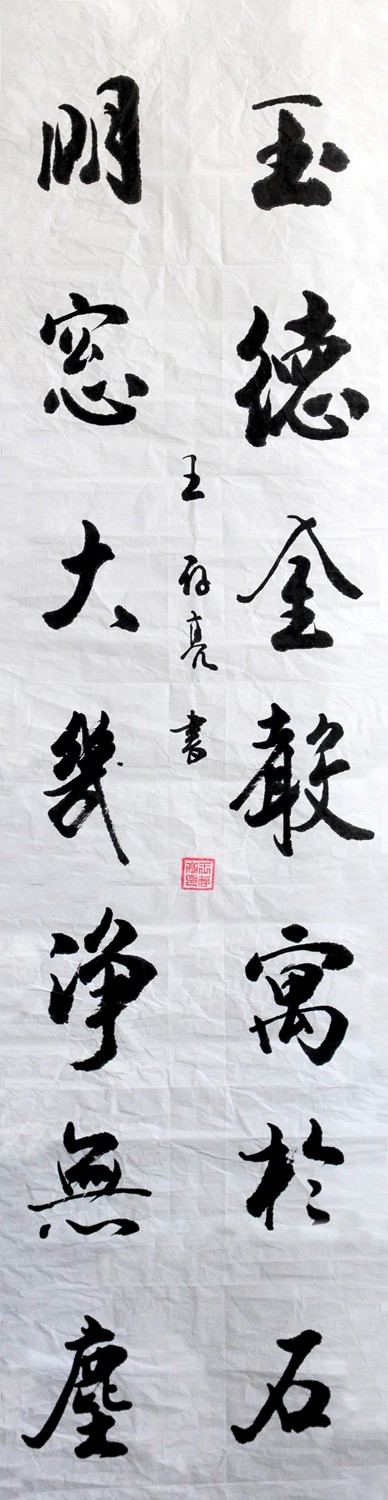 玉德金聲寓於石
明窓大幾淨無塵
王存亮書